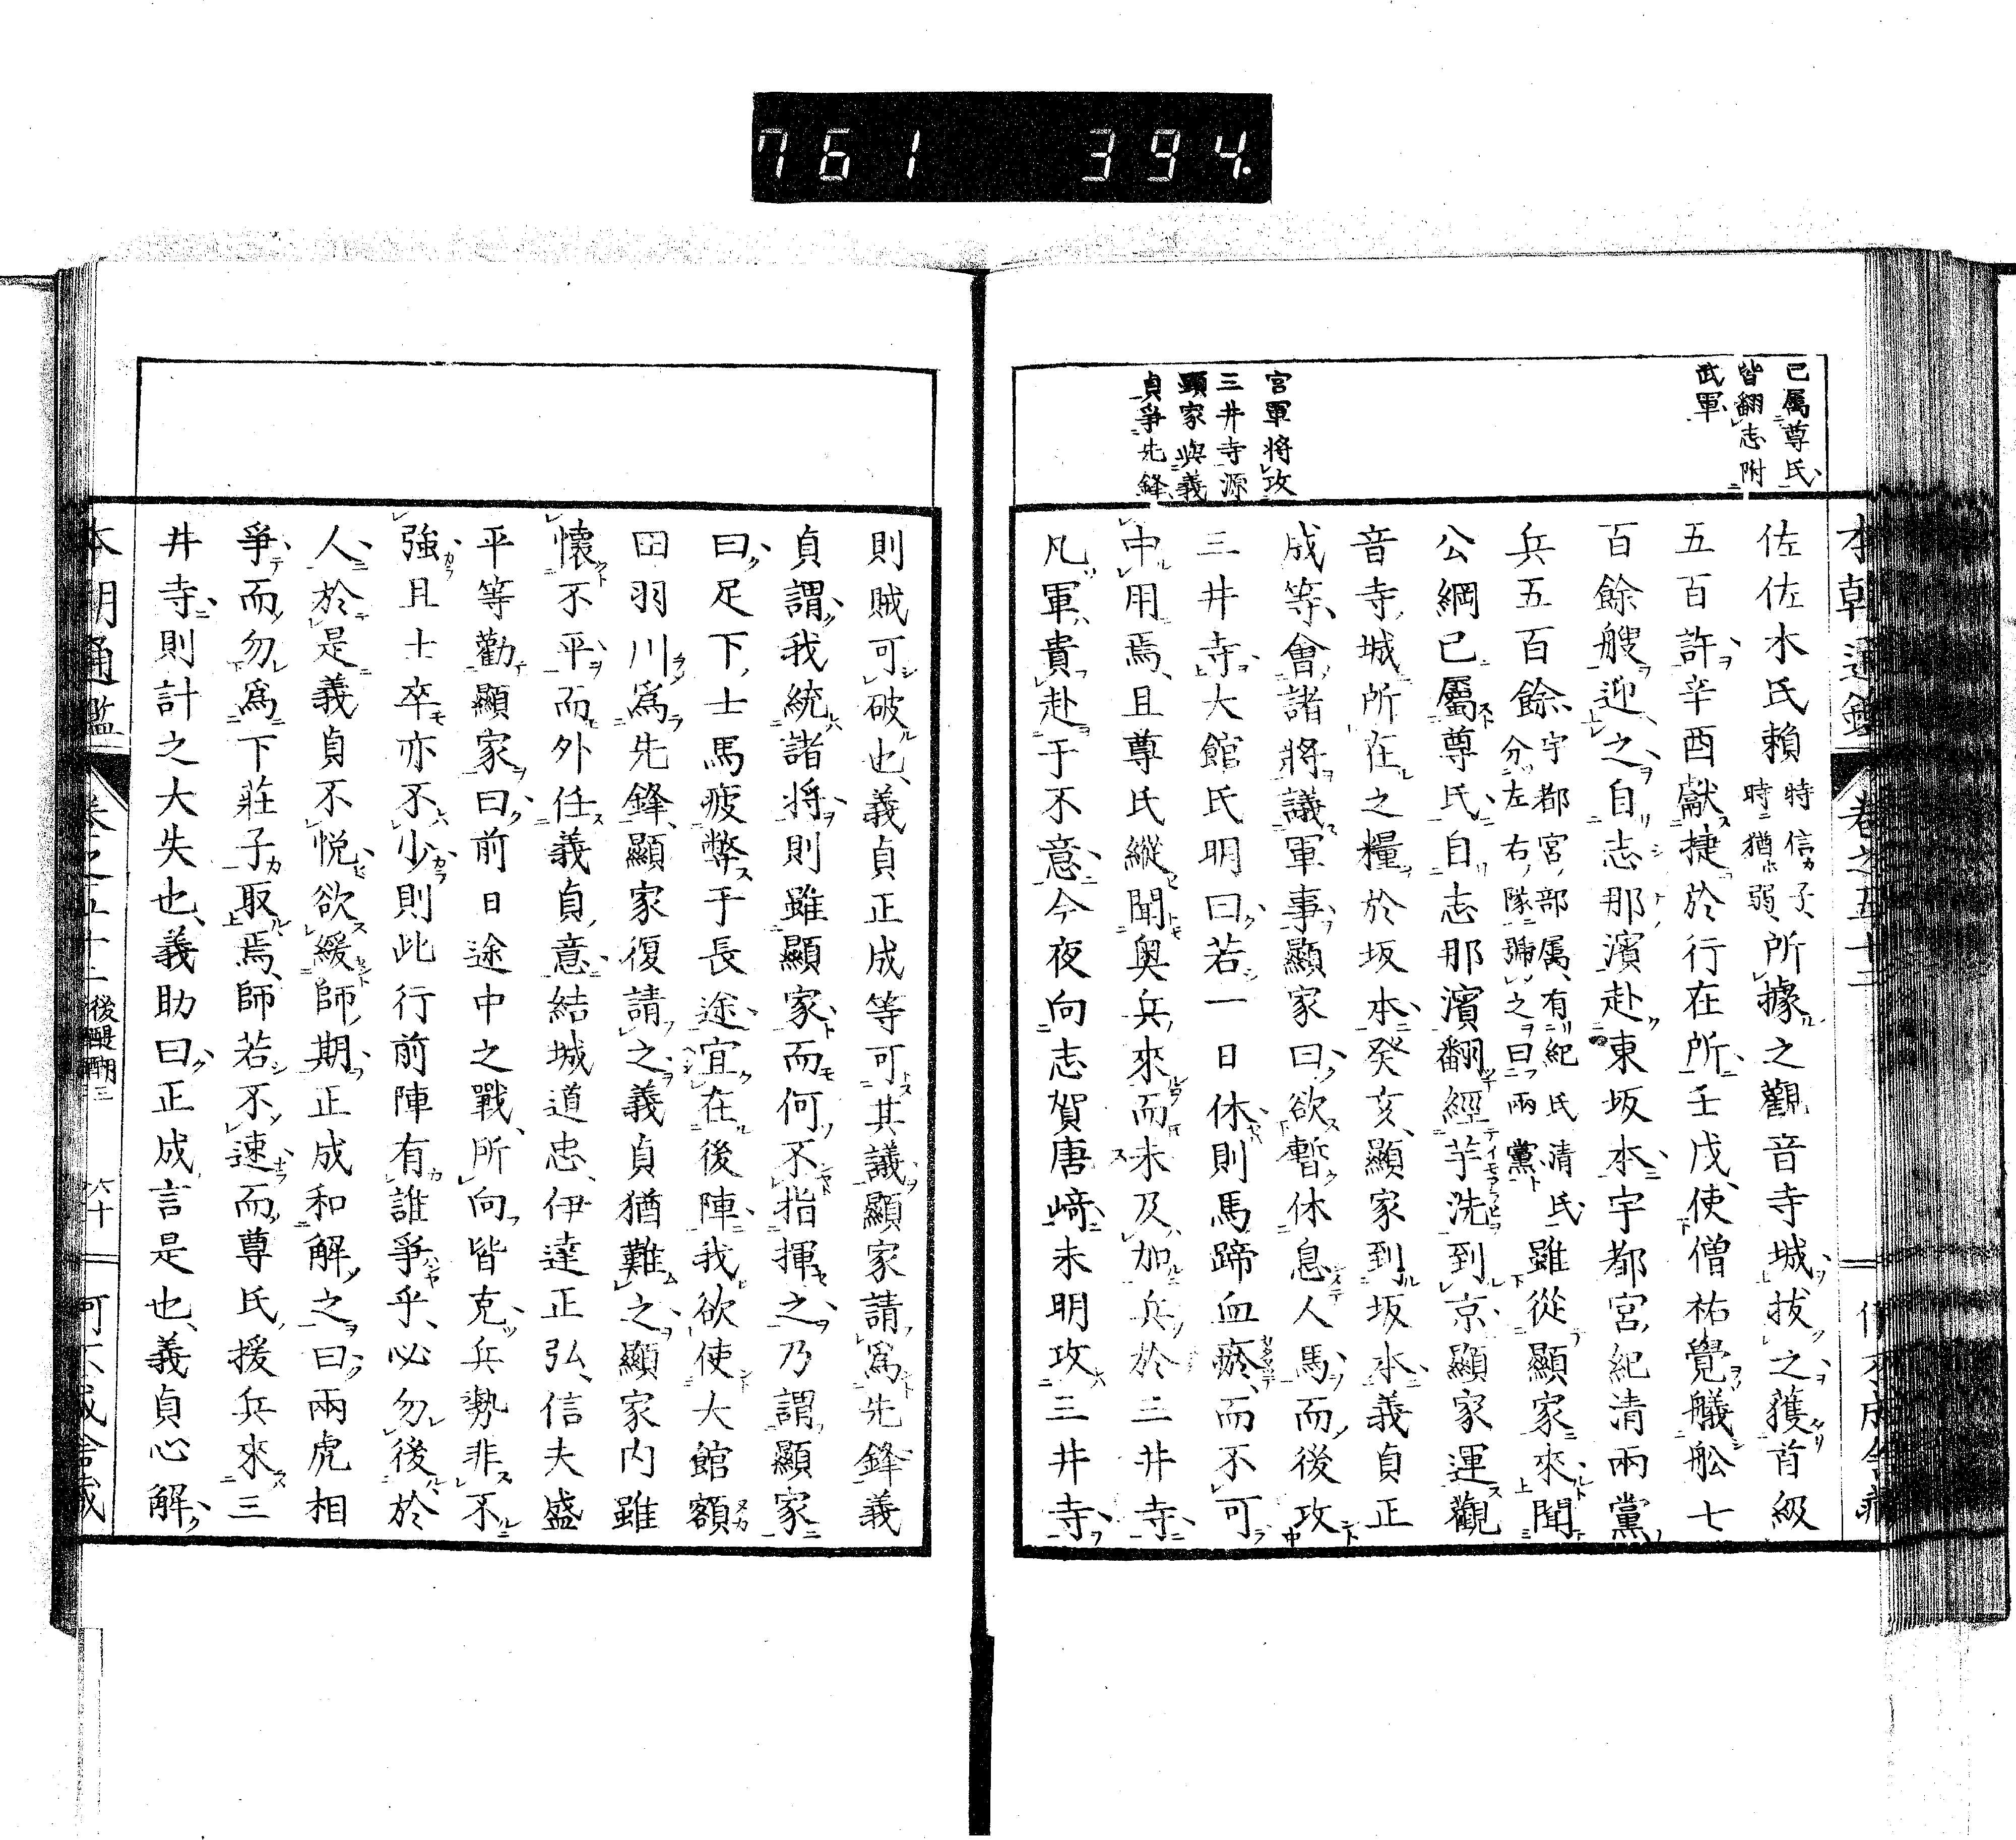 761 394.
已屬尊氏
皆翻志附
武軍
宮軍將攻
三井寺源
顯家與義
貞爭先鋒
佐佐木氏賴時信子、時猶弱、所據之觀音寺城拔之獲首級
五百許辛酉獻捷於行在所壬戌、使僧祐覺艤舩七
百餘艘迎之自志那濱赴東坂本宇都宮紀清兩黨
兵五百餘宇都宮部屬、有紀氏清氏分左右隊號之曰兩黨雖從顯家來聞
公綱已屬尊氏自志那濱翻經芋洗到京顯家運觀
音寺城所在之糧於坂本癸亥、顯家到坂本義貞正
成等會諸將議軍事顯家曰欲暫休息人馬而後攻
三井寺大館氏明曰若一日休則馬蹄血瘀、而不可
中用焉、且尊氏縱聞奧兵來而未及加兵於三井寺
凡軍貴赴于不意今夜向志賀唐崎未明攻三井寺
則賊可破也、義貞正成等可其議顯家請爲先鋒義
貞謂我統諸將則雖顯家而何不指揮之乃謂顯家
曰足下士馬疲弊于長途宜在後陣我欲使大館額
田羽川爲先鋒顯家復請之義貞猶難之顯家内雖
懷不平而外任義貞意結城道忠、伊達正弘、信夫盛
平等勸顯家曰前日途中之戰、所向皆克兵勢非不
強且士卒亦不少則此行前陣有誰爭乎、必勿後於
人於是義貞不悅欲緩師期正成和解之曰兩虎相
爭而勿爲下莊子取焉、師若不速而尊氏援兵來三
井寺則計之大失也、義助曰正成言是也、義貞心解
本朝通鑑 卷之五十二 後醍醐三 六十